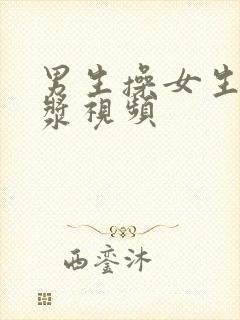 男生操女生
漿視頻
西銮沐